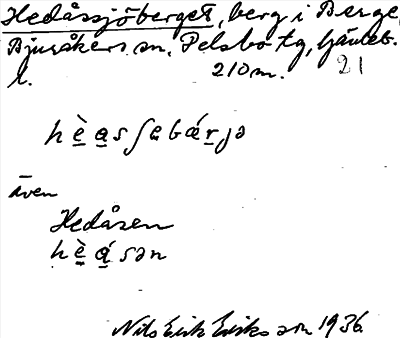 Hedåssjöberget, berg i Berge,
Bjuråkers sn, Pelsbo tg, Hävleb.
l. 210 m. 21
hèasʃøbǽrjə
även
Hedåsen
hèásən
Nils Erik Eriksson 1936.